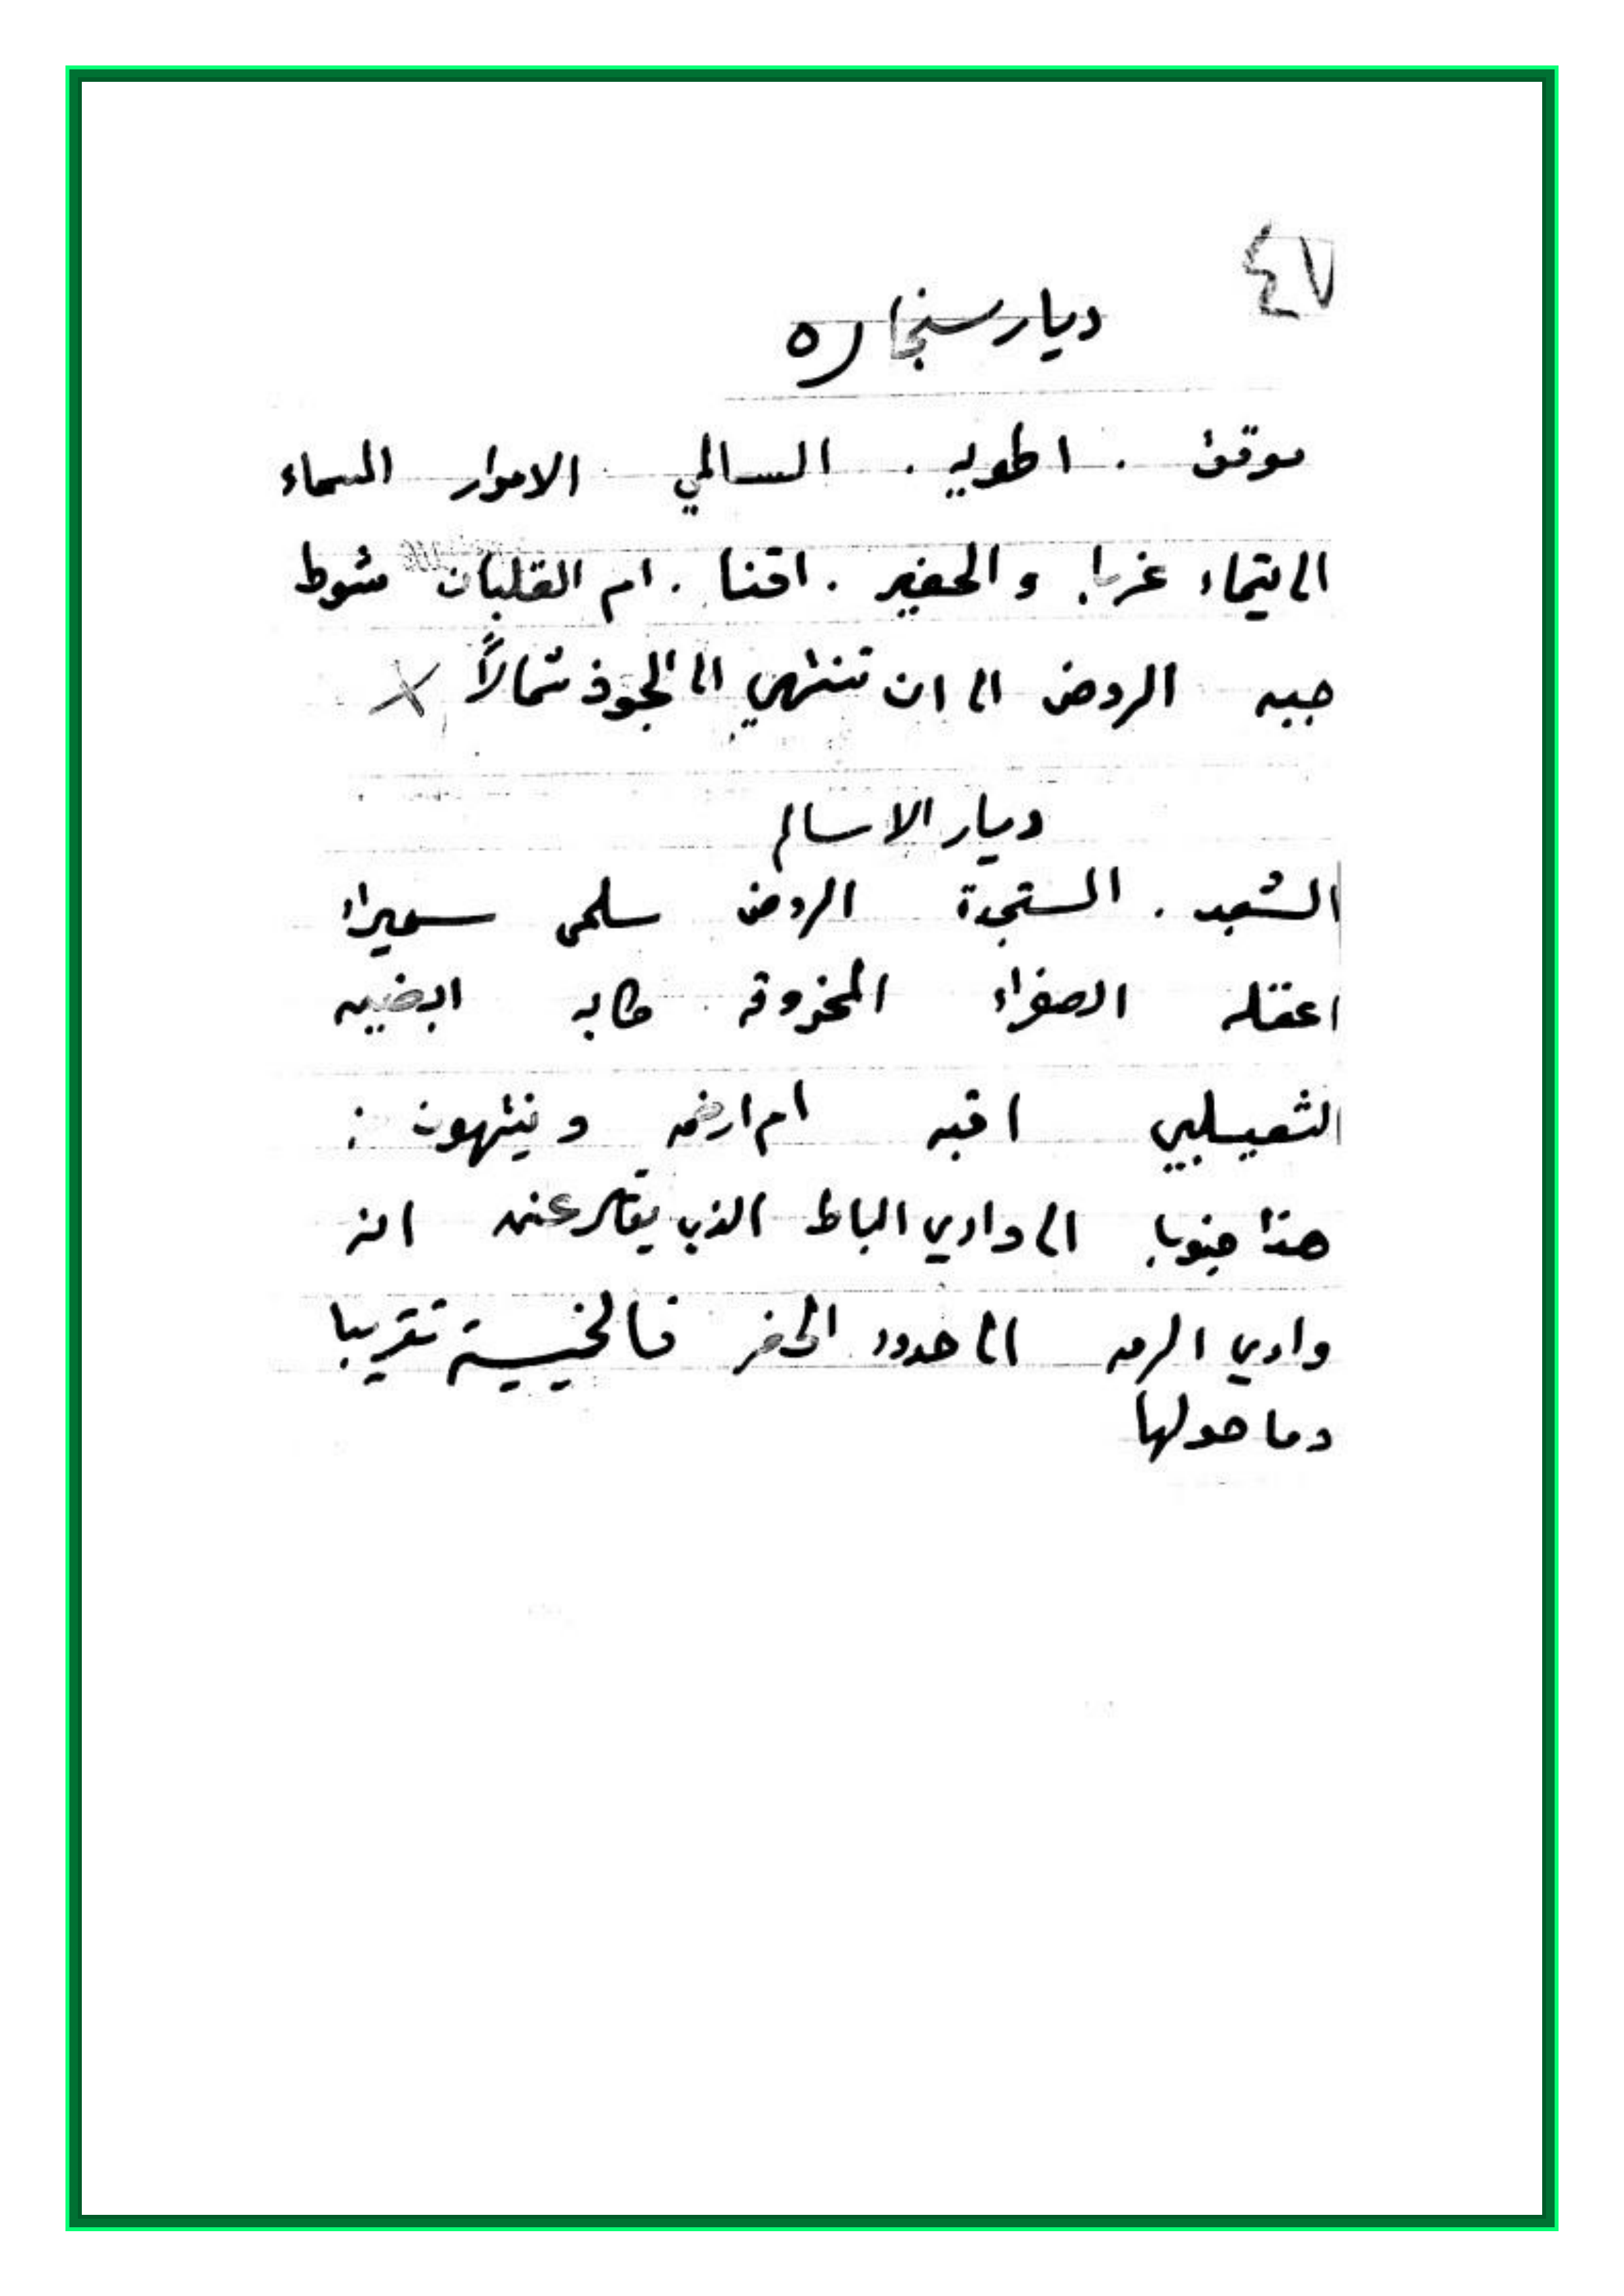 ٤٧
ديار سنجاره
موقق . اطويه . السالمي الاموار السماء
الى تيماء غربا والحفير . اقنا . ام القلبان شوط
جبه الروض الى ان تنتهي الى الجوف شمالاً ×
ديار الاسالم
المستجدة الروض سلمى سميراء
اعقله الصفراء المخروقه
الثعيلبي اقبه ام ارضمه وينتهون
هذا جنوبا الى وادي الباط الذي عنه
وادي الرمه الى حدود الحفر فالخيسية تقريبا
وما حولها